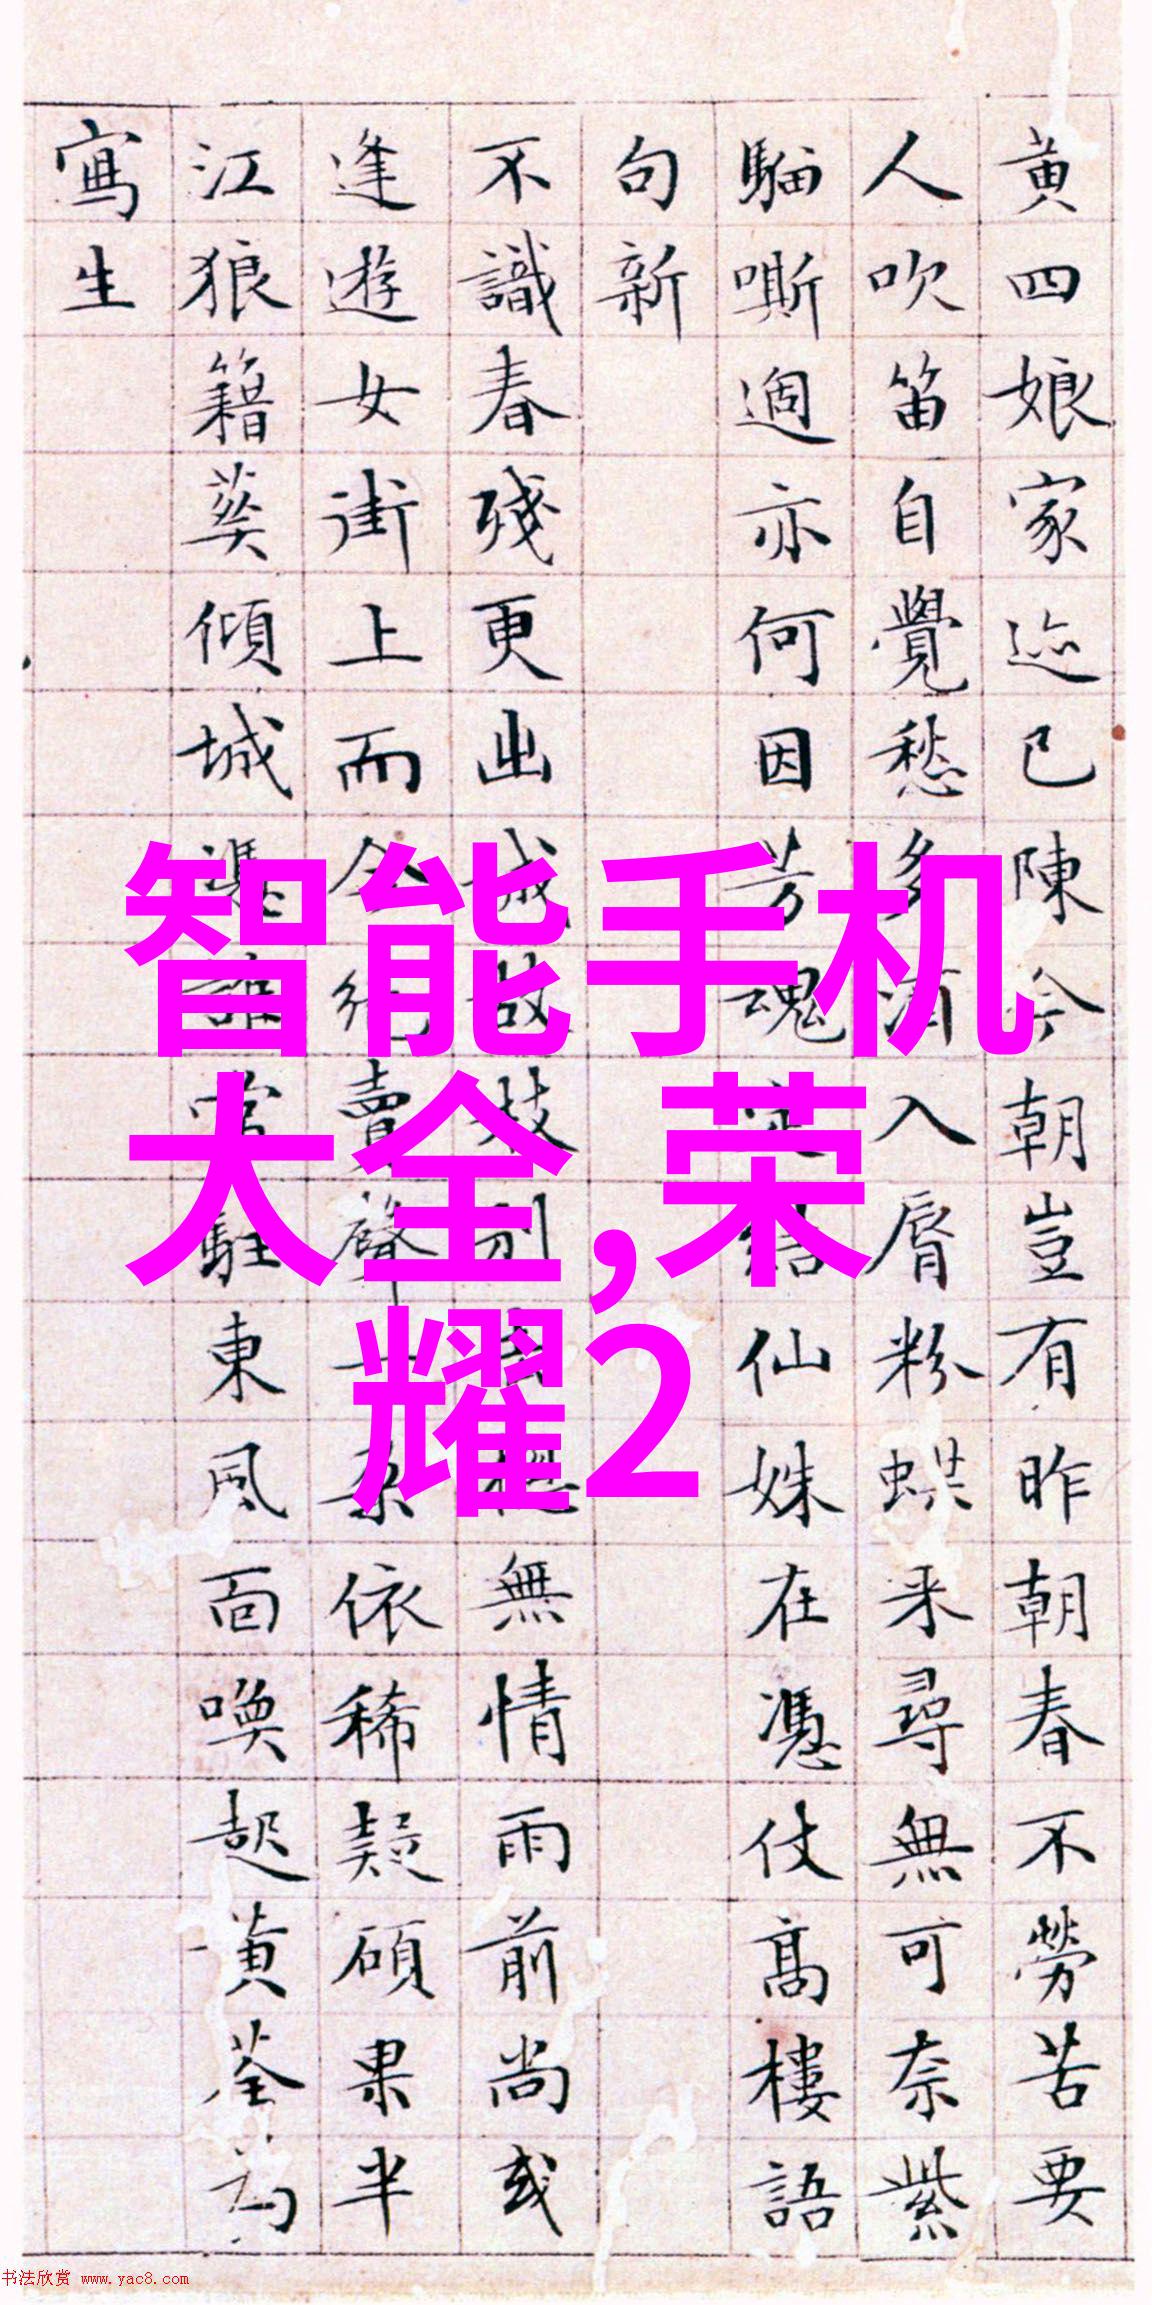 黄四娘家迹已陳今朝豈有昨朝春不勞苦要
人吹笛自覺愁多入脣粉蝶来尋無可奈紫
騮嘶過亦何因芳魂結仙姝在憑仗高樓語
句新
不識春殘更出城故枝別無情雨前尚或
逢遊女街上而今賣聲一朵依稀疑碩果半
江狼籍葵傾城憑誰當駐東風面喚起黄荃為
寫生
智能手机
大全,荣
耀2
书法欣赏 www.yac8.com